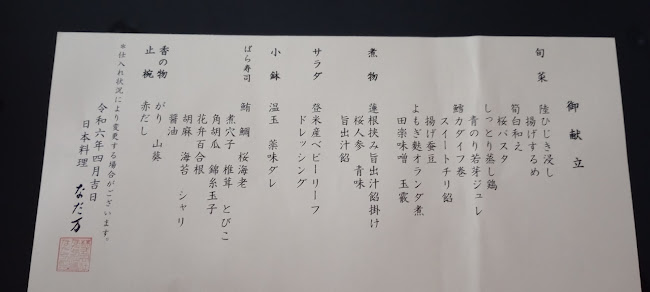 御献立
旬菜
陸ひじき浸し
揚げするめ
筍白和え
桜パスタ
しっとり蒸し鶏
青のり若芽ジュレ
鱈カダイフ巻
スイートチリ餡
揚げ蚕豆
よもぎ麩オランダ煮
田楽味噌 玉霰
煮物
蓮根挟み旨出汁餡掛け
桜人参 青味
旨出汁餡
サラダ
登米産ベビーリーフ
ドレッシング
小鉢
温玉 薬味ダレ
ばら寿司
鮪 鯛 桜海老
煮穴子 椎茸 とびこ
角胡瓜 錦糸玉子
花弁百合根
胡麻 海苔 シャリ
醤油
香の物
がり 山葵
止椀
赤だし
*仕入れ状況により変更する場合がございます。
令和六年四月吉日
日本料理 なだ万